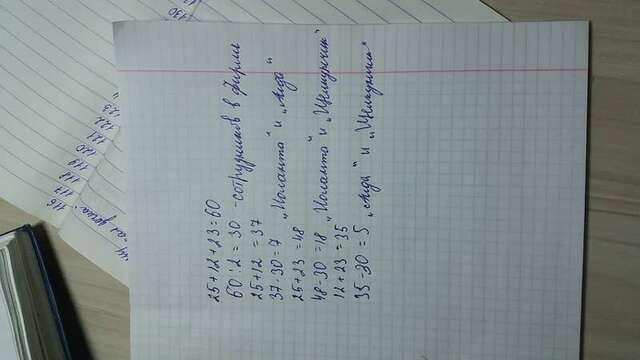 116
117
118
119
120
121
122
123
130
25+12+23=60
60:2=30 -сотрудников в фирме
25+12=37
37-30=7 „Иоланта" и „Аида"
25+23=48
48-30=18 „Иоланта" и „Щелкунчик"
12+23=35
35-30=5 „Аида" и „Щелкунчик"